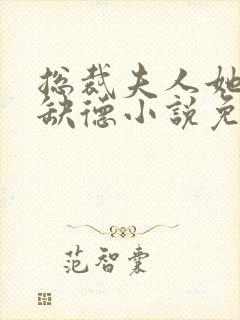 总裁夫人她
缺德小说免
范智囊